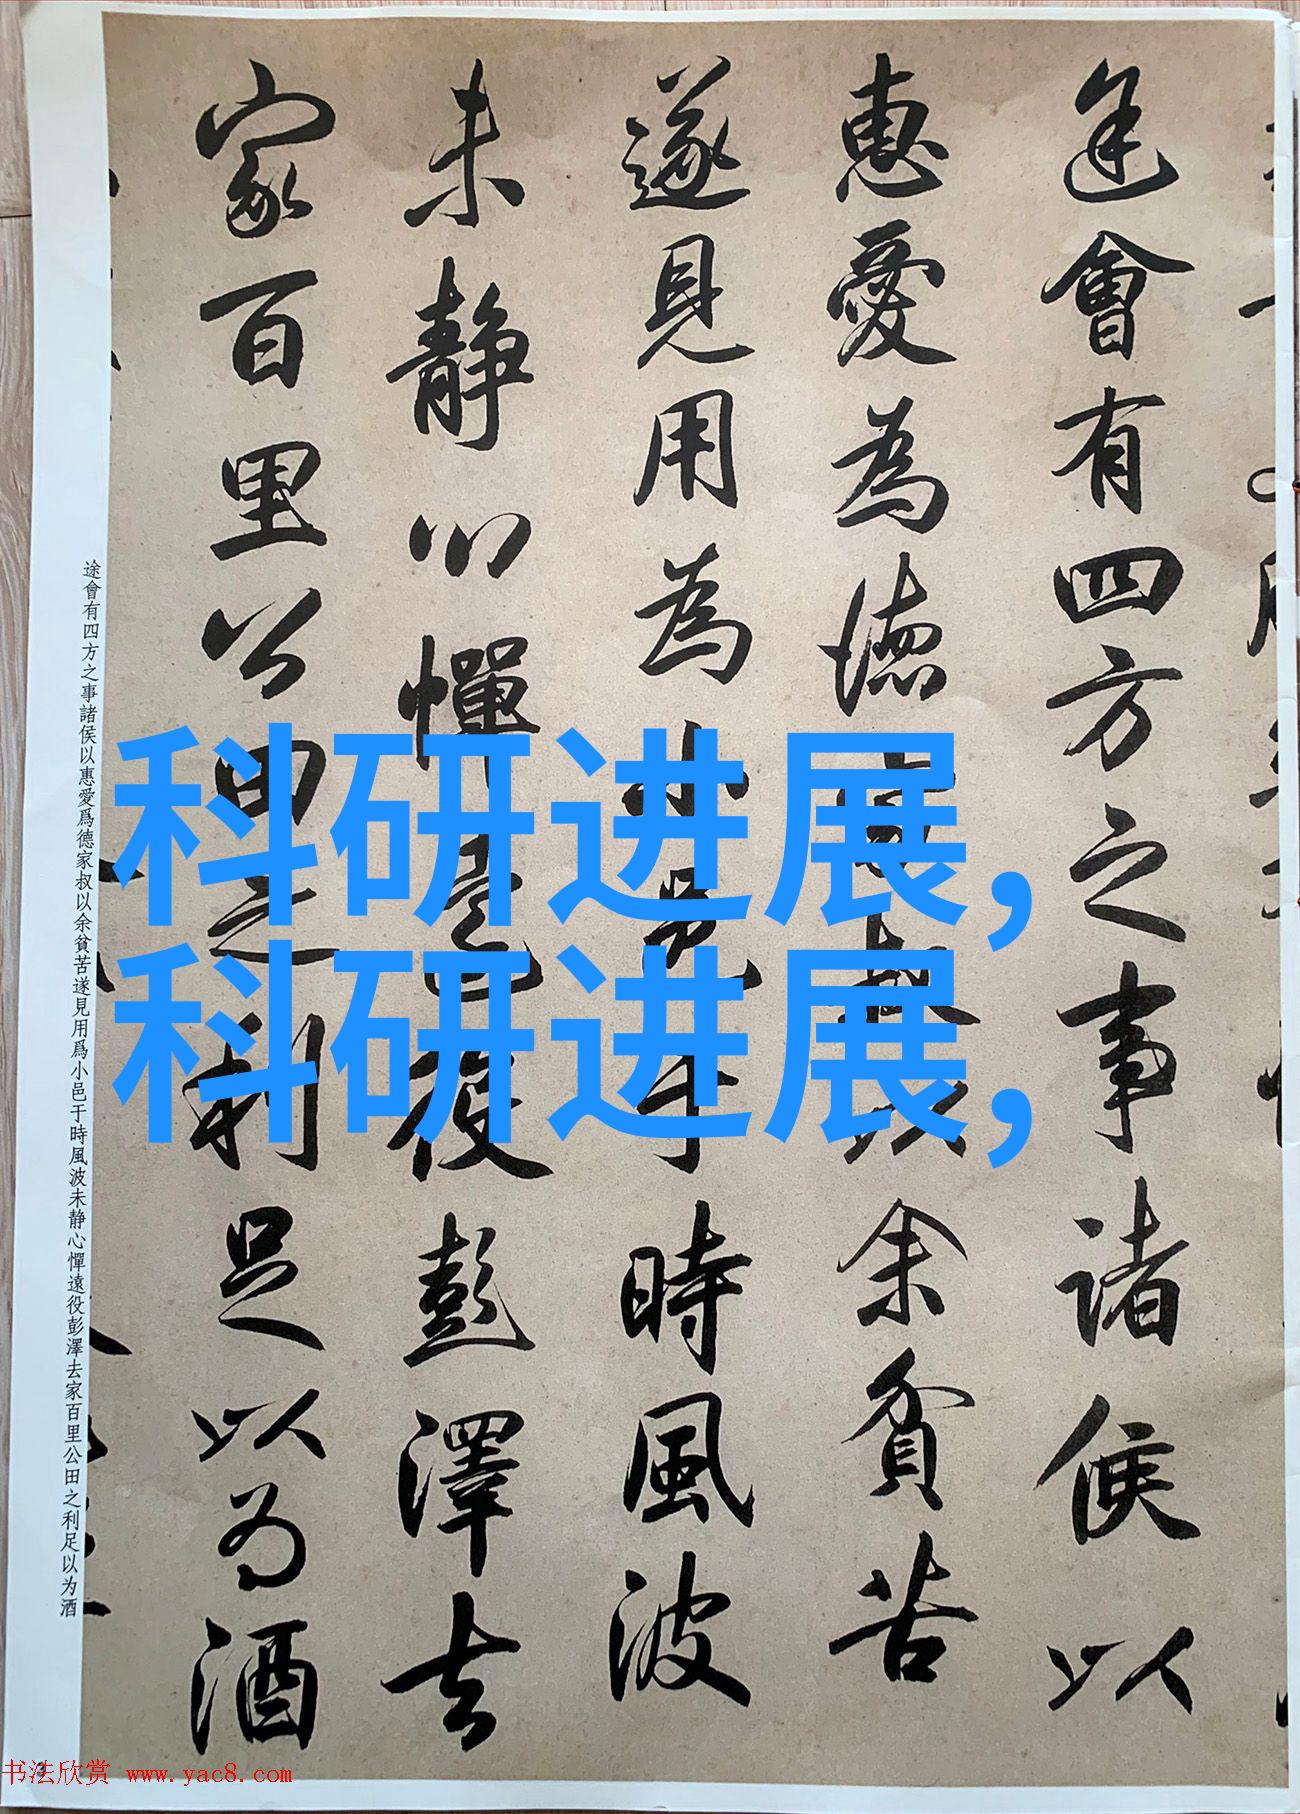 途會有四方之事諸侯以
惠愛為德家叔以余貧苦
遂見用為小邑于時風波
未静心憚遠役彭澤去
家百里公田之利足以為酒
途會有四方之事諸侯以惠愛爲德家叔以余貧苦遂見用爲小邑于時風波未静心憚遠役彭澤去家百里公田之利足以为酒
科研进展,
科研进展,
3
书法欣赏 www.yac8.com